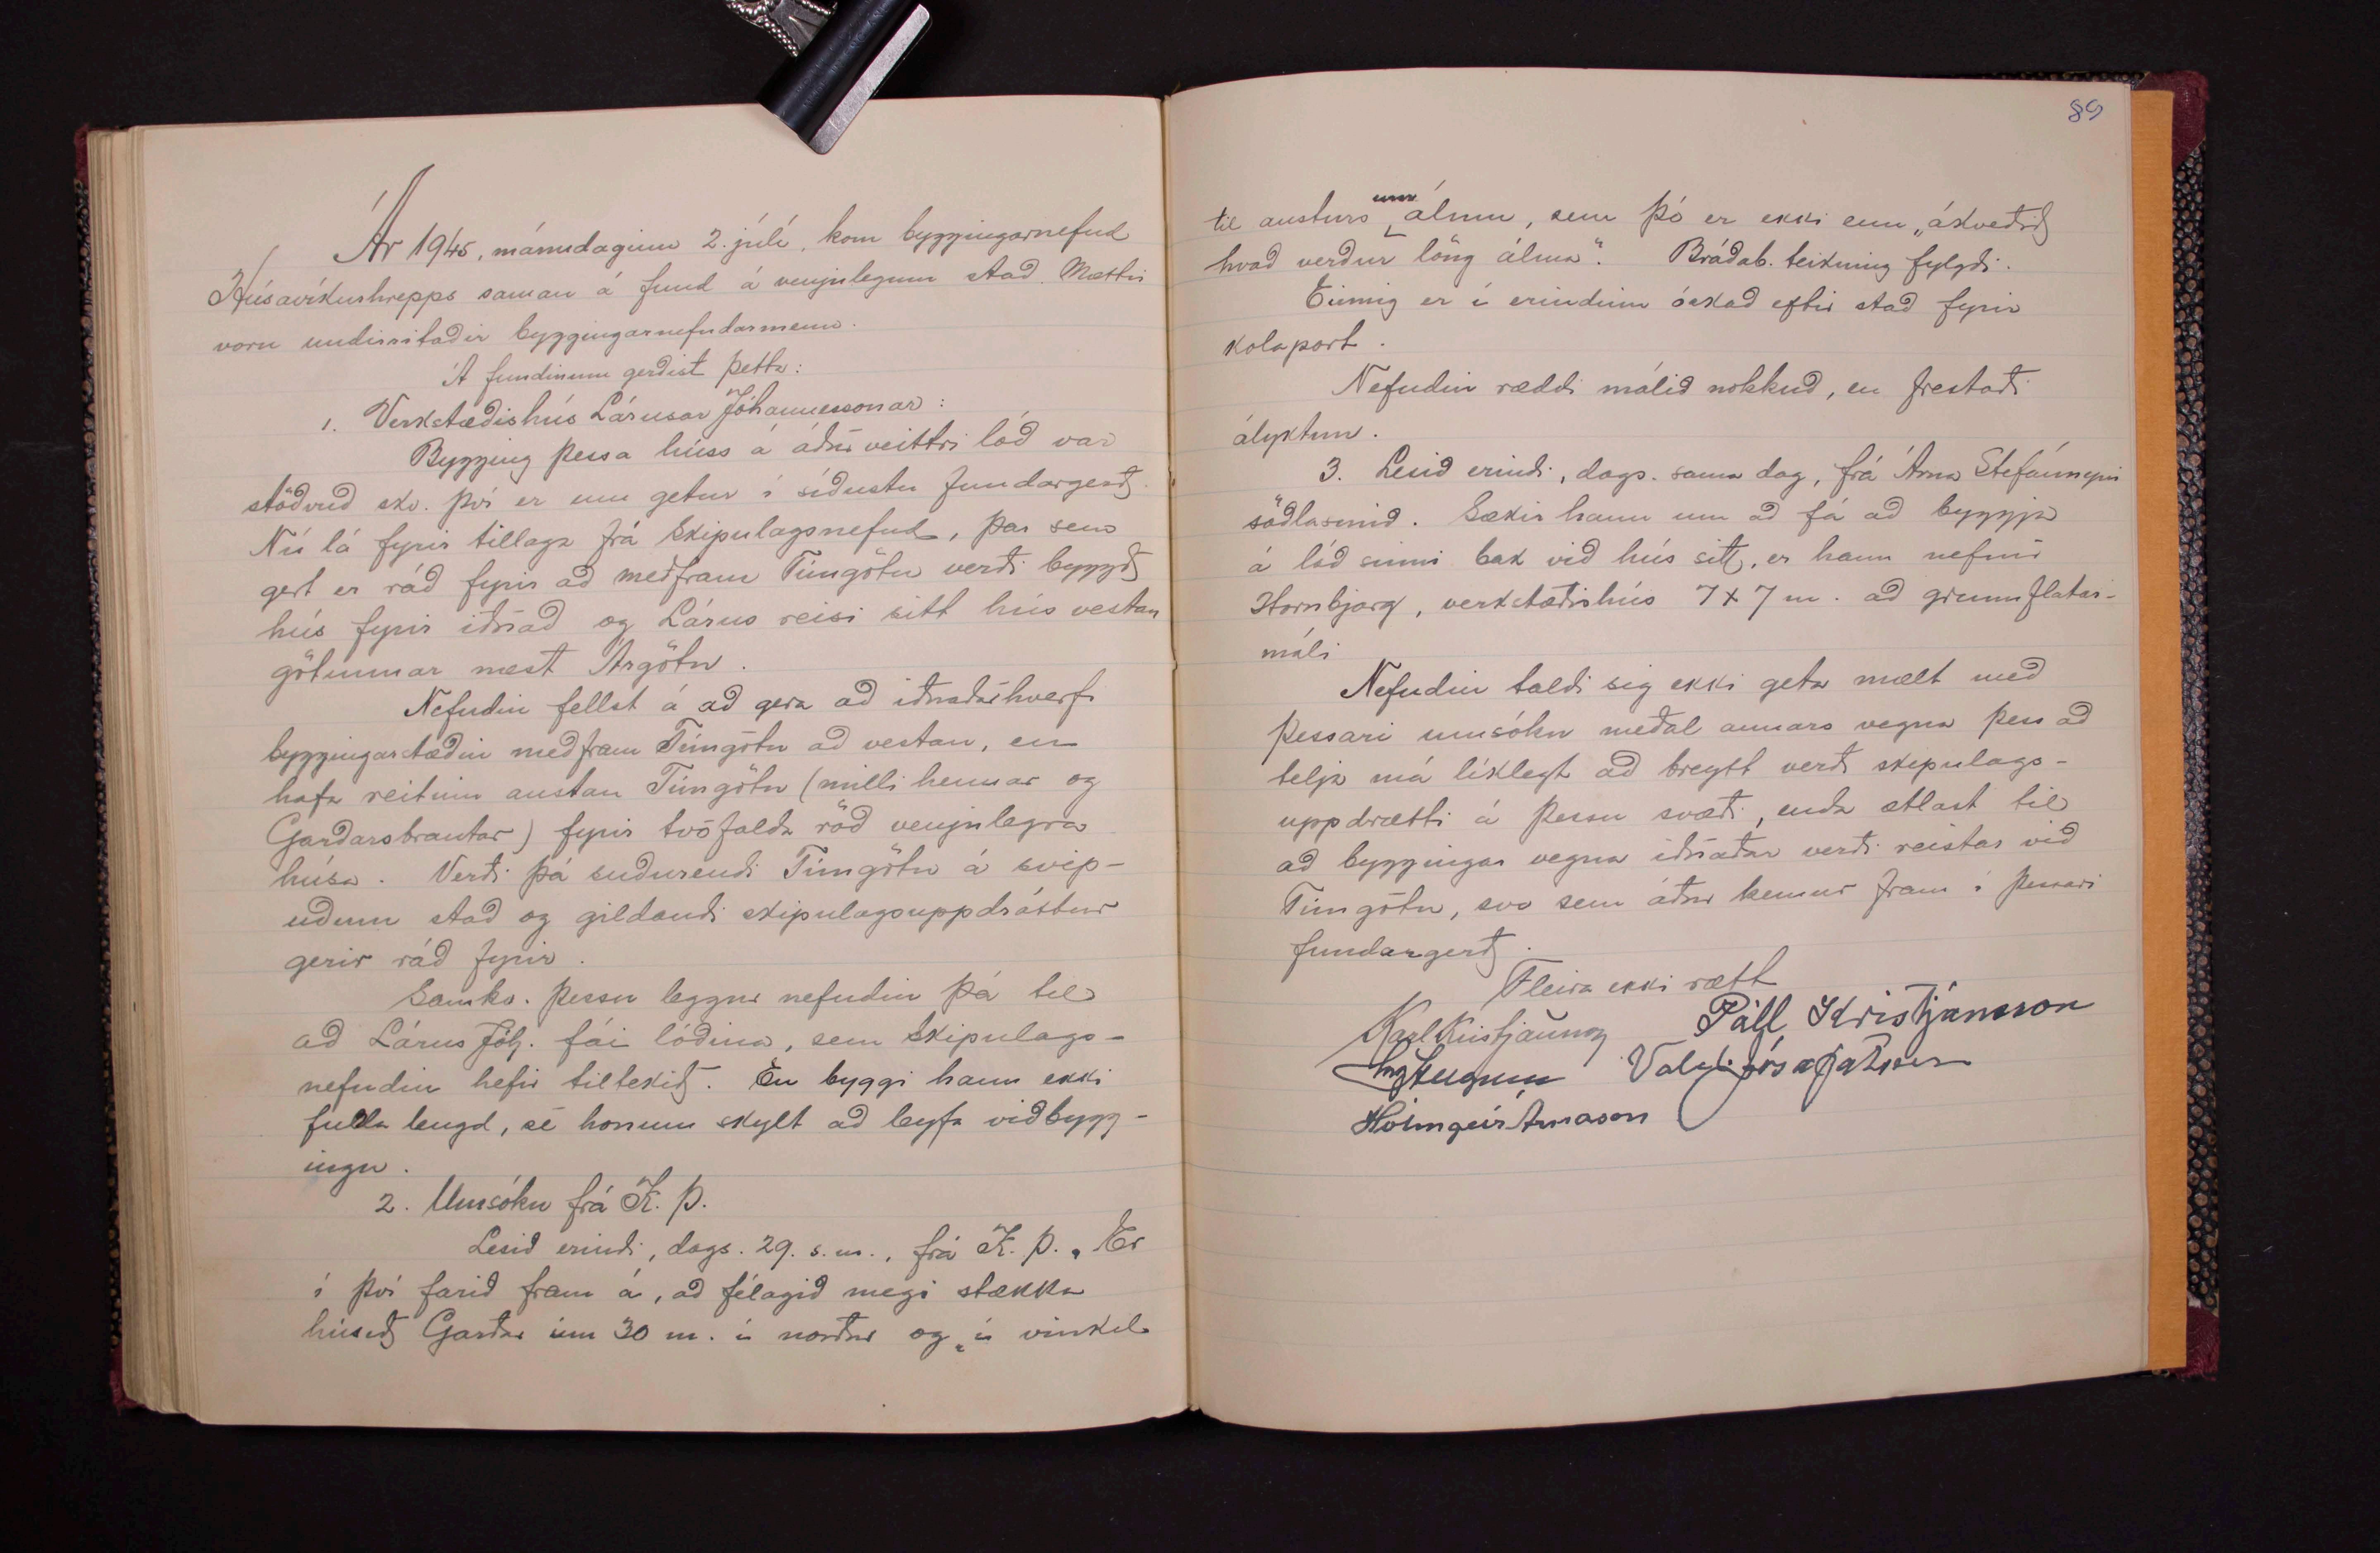 Ár 1945, mánudaginn 2. júlí, kom byggingarnefnd
Húsavíkurhrepps saman á fund á venjulegum stað. Mættir
voru undirritaðir byggingarnefndarmenn.
Á fundinum gerðist þetta:
1. Verkstæðishús Lárusar Jóhannessonar:
Bygging þessa húss á áður veittri lóð var
stöðvuð skv. því er um getur í síðustu fundargerð.
Nú lá fyrir tillaga frá Skipulagsnefnd, þar sem
gert er ráð fyrir að meðfram Túngötu verði byggð
hús fyrir iðnað og Lárus reisi sitt hús vestan
götunnar næst Árgötu.
Nefndin fellst á að gera að iðnaðarhverfi
byggingarstæðin meðfram Túngötu að vestan, en
hafa reitinn austan Túngötu (milli hennar og
Garðarsbrautar) fyrir tvöfalda röð venjulegra
húsa. Verði þá suðurendi Túngötu á svip-
uðum stað og gildandi skipulagsuppdráttur
gerir ráð fyrir.
Samkv. þessu leggur nefndin þá til
að Lárus Jóh. fái lóðina, sem Skipulags-
nefndin hefir tiltekið. En byggi hann ekki
fulla lengd, sé honum skylt að leyfa viðbygg-
ingu.
2. Umsókn frá K. Þ.
Lesið erindi, dags. 29. s.m., frá K. Þ. Er
í því farið fram á, að félagið megi stækka
húsið Garðar um 30 m. í norður og „í vinkel
89
til austurs um álmu, sem þó er ekki enn „ákveðið
hvað verður löng álma“. Bráðab. teikning fylgdi.
Einnig er í erindinu óskað eftir stað fyrir
kolaport.
Nefndin ræddi málið nokkuð, en frestaði
ályktun.
3. Lesið erindi, dags. sama dag, frá Árna Stefánssyni
söðlasmið. Sækir hann um að fá að byggja
á lóð sinni bak við hús sitt, er hann nefnir
Hornbjarg, verkstæðishús 7 x 7 m. að grunnflatar-
máli
Nefndin taldi sig ekki geta mælt með
þessari umsókn meðal annars vegna þess að
telja má líklegt að breytt verði skipulags-
uppdrætti á þessu svæði, enda ætlast til
að byggingar vegna iðnaðar verði reistar við
Túngötu, svo sem áður kemur fram í þessari
fundargerð.
Fleira ekki rætt
Karl Kristjánsson Páll Kristjánsson
Jósafatsson
Hólmgeir Árnason